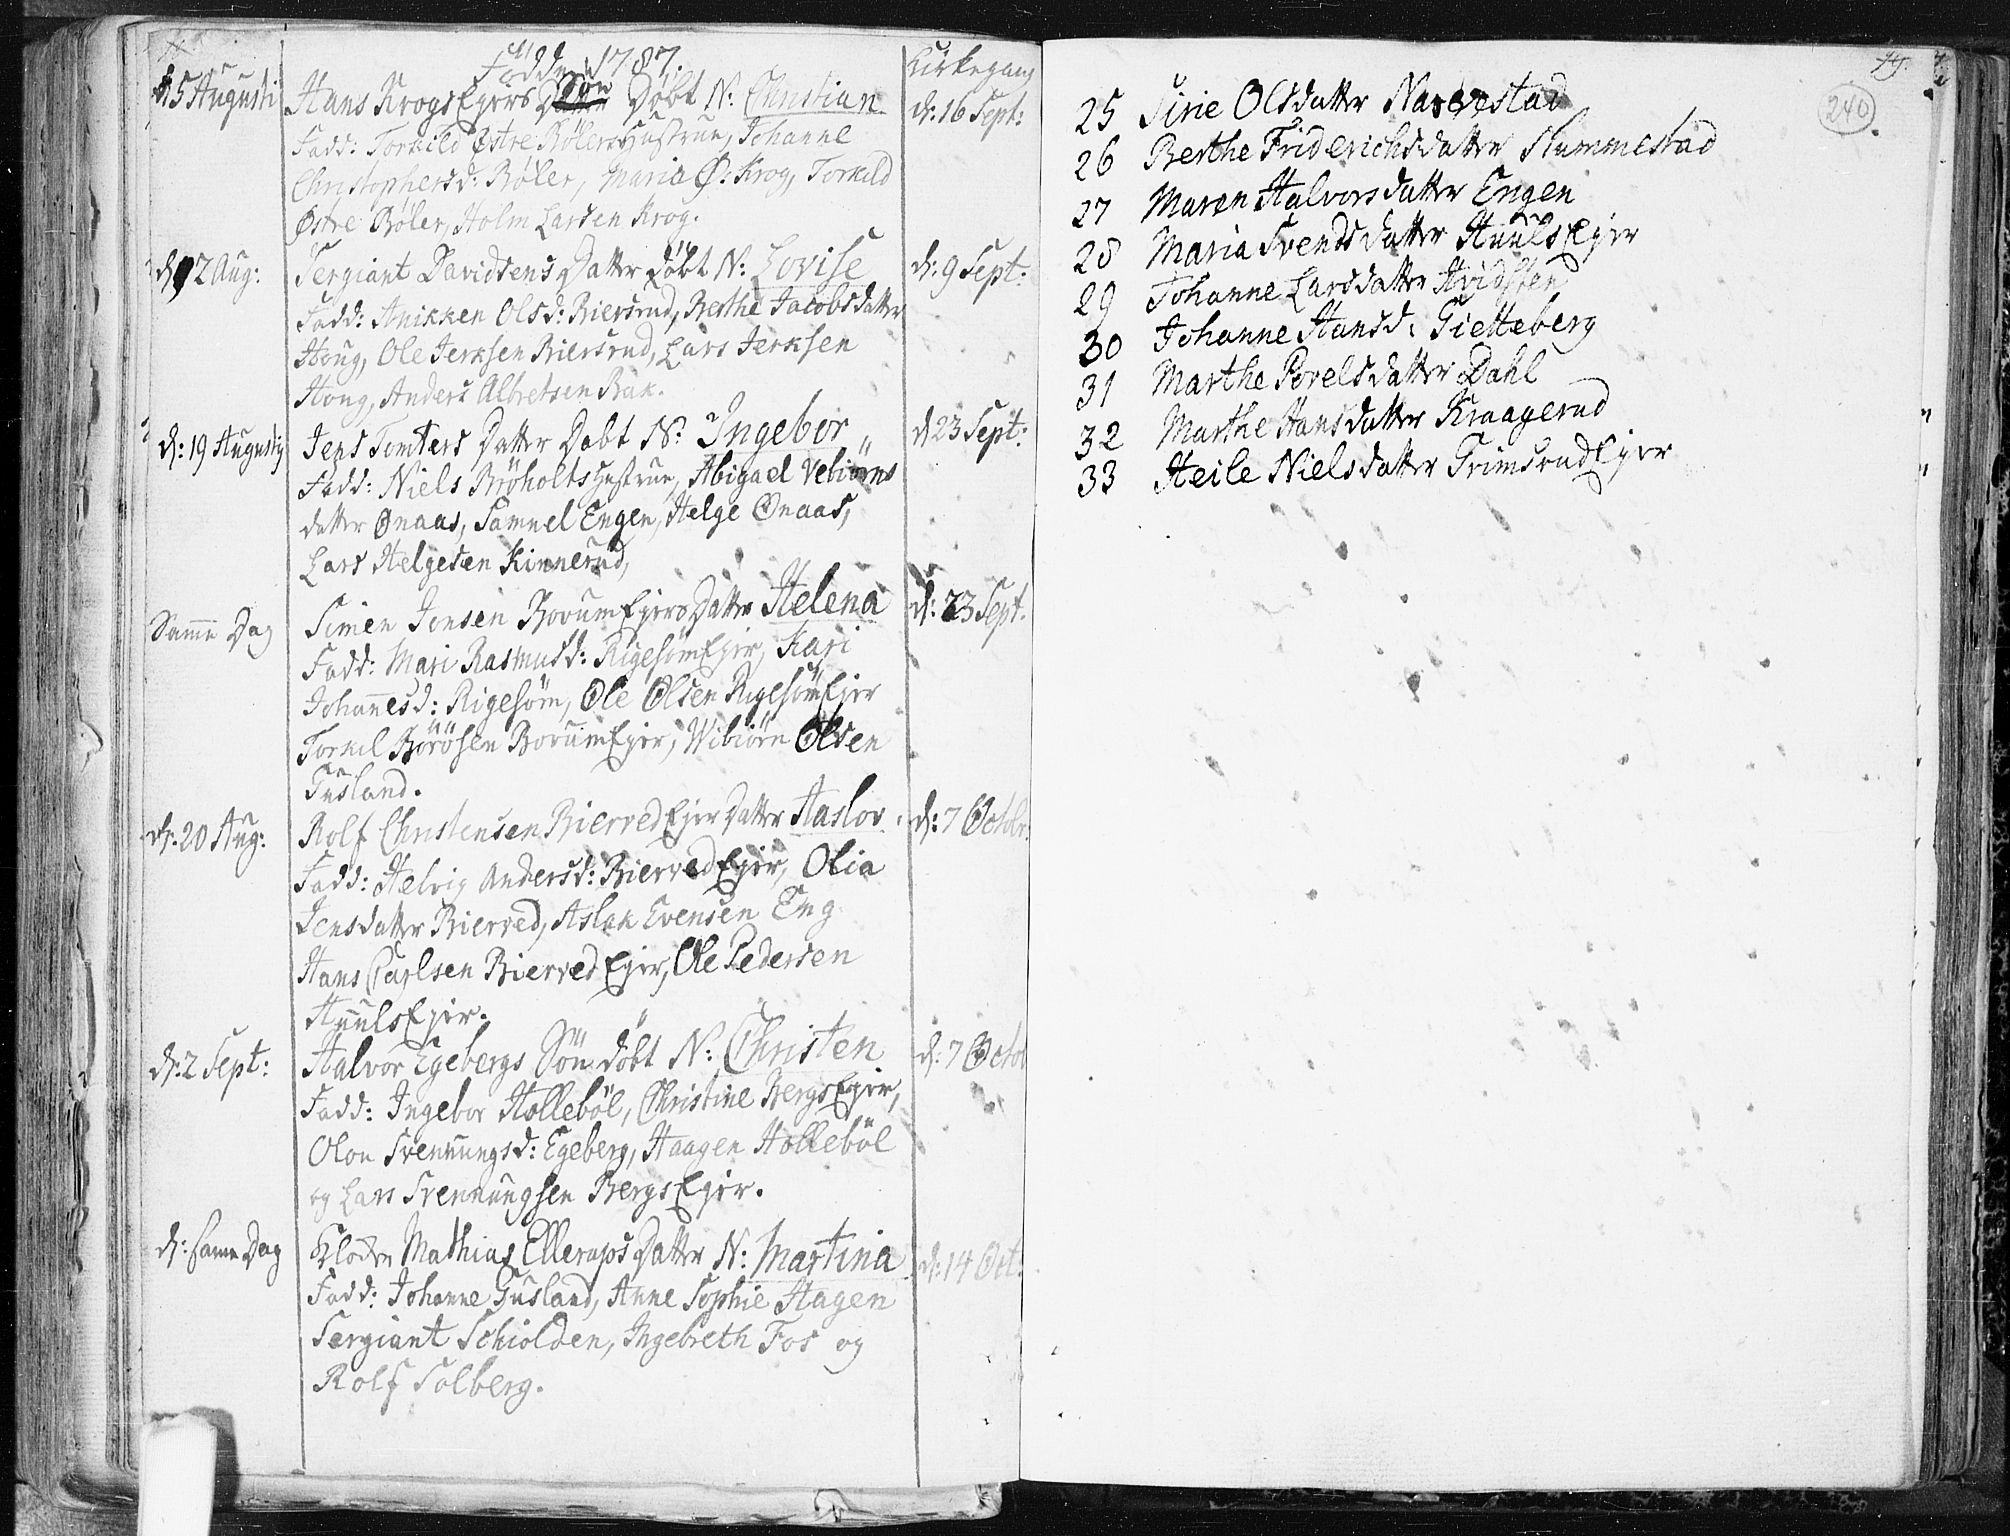 Födde 1787.
Kirkegang
d: 5 Augusti
Hans Krogs Ejers Søn Døbt N: Christian
d: 16 Sept:
Fadd: Torkild Østre Bølers Hustrue, Johanne
Christophersd: Bøler, Maria Ø: Krog, Torkild
Østre Bøler, Holm Larsen Krog.
d: 12 Aug:
Sergiant Davidsens Datter Døbt N: Lovise
d: 9 Sept:
Fadd: Anikken Olsd: Biersrud, Berthe Jacobsdatter
Houg, Ole Jerksen Biersrud, Lars Jerksen
Houg, Anders Albretsen Bak.
d: 19 Augustij
Jens Tomters Datter Døbt N: Ingebor
d 23 Sept:
Fadd: Niels Brøholts Hustrue, Abigael Vebiørns
datter Ønaas, Samuel Engen, Helge Ønaas,
Lars Helgesen Kinnerud,
Samme Dag
Simen Jensen Borum Ejers Datter Helena
d: 23 Sept.
Fadd: Mari Rasmusd: Rigesøm Ejer, Kari
Johannesd: Rigesøm, Ole Olsen Rigesøm Ejer
Torkel Börösen Borum Ejer, Wibiørn Olsen
Tusland.
d: 20 Aug:
Rolf Christensen Bierved Ejer Datter Aaslov
d: 7 Octobr.
Fadd: Helvig Andersd: Bierved Ejer, Olia
Jensdatter Bierved, Aslak Evensen Eng
Hans Carlsen Bierved Ejer, Ole Pedersen
Huuls Ejer.
d: 2 Sept:
Halvor Egebergs Sön döbt N: Christen
d: 7 Octob
Fadd: Ingebor Holleböl, Christine Bergs Ejer,
Olou Svennungsd: Egeberg, Haagen Holleböl
og Lars Svennungsen Bergs Ejer.
d: samme Dag
Klocker Mathias Ellerups Datter N: Martina
d: 14 Oct:
Fadd: Johanne Tusland, Anne Sophie Hagen
Sergiant Schiolden, Ingebreth Fos og
Rolf Solberg.
49.
240
25 Sirie Olsdatter Narvestad
26 Berthe Friderichsdatter Slummestad
27 Maren Halvorsdatter Engen
28 Maria Svendsdatter Huuls Ejer
29 Johanne Larsdatter Hvidsten
30 Johanne Hansd: Gietteberg
31 Marthe Povelsdatter Dahl
32 Marthe Hansdatter Kraagerud
33 Heile Nielsdatter Grimsrud Ejer